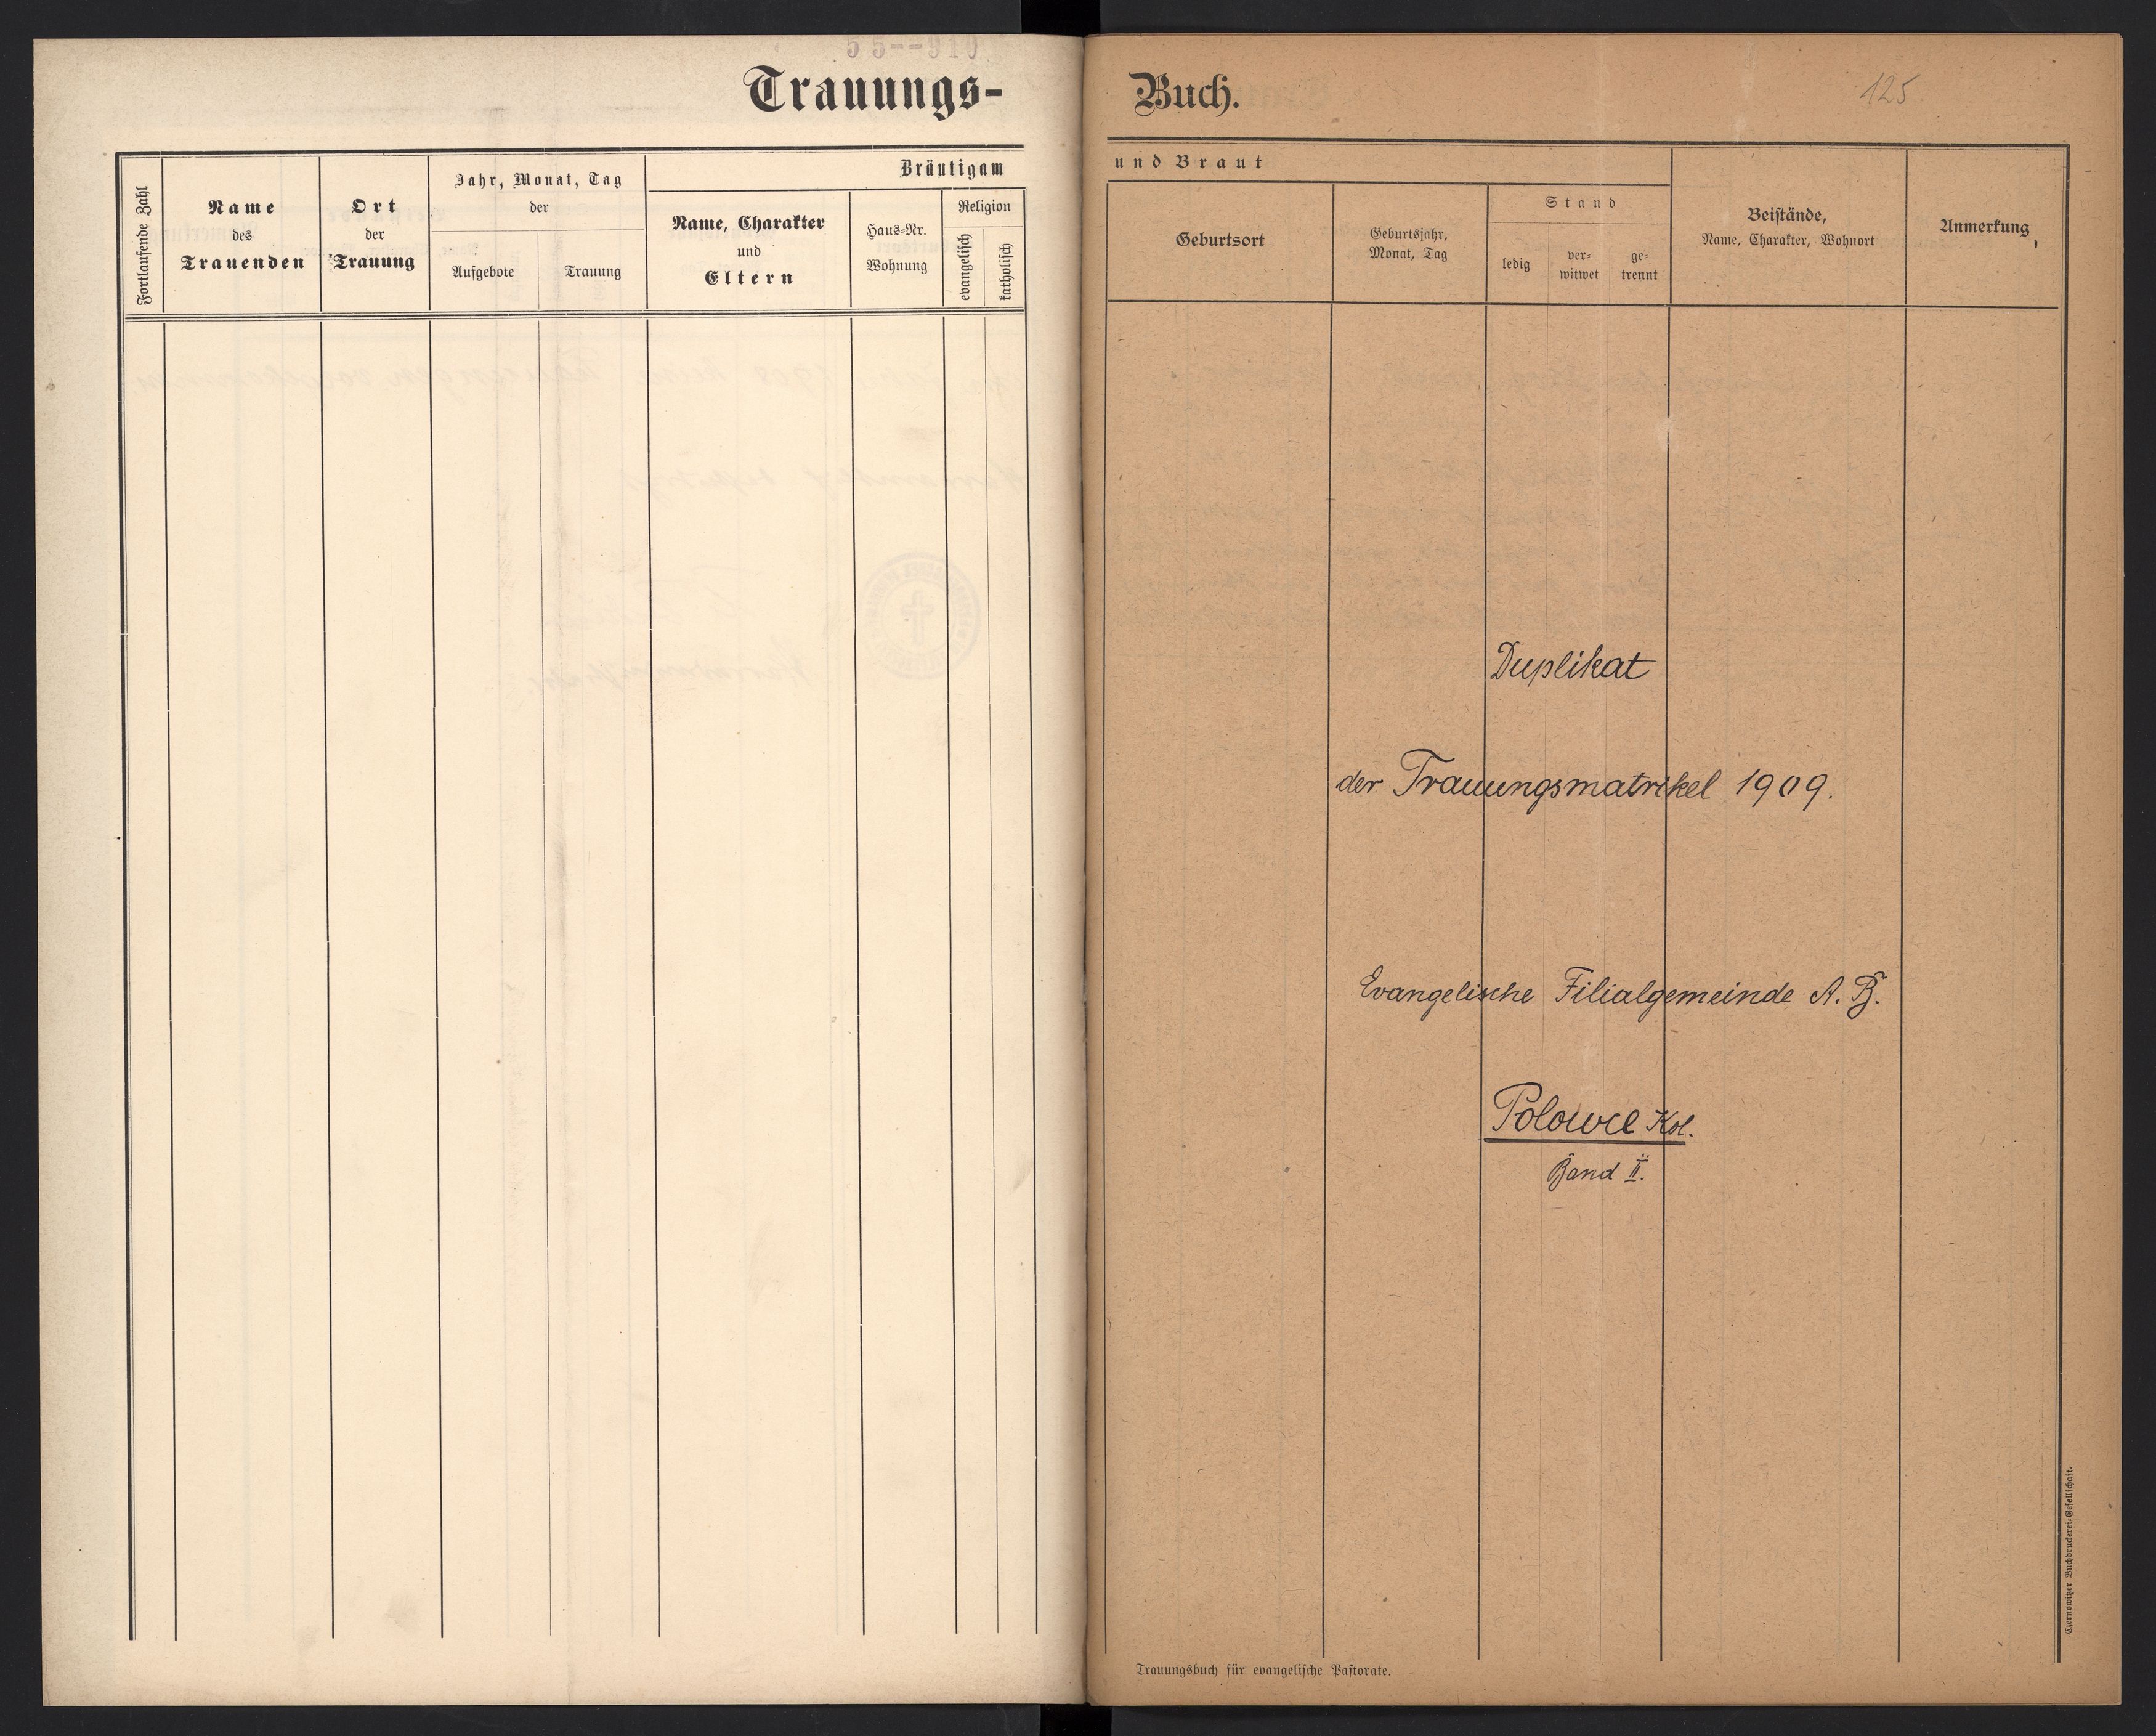 55--910
Trauungs-
Fortlaufende Zahl
Name
des
Trauenden
Ort
der
Trauung
Jahr, Monat, Tag
der
Aufgebote
Trauung
Bräutigam
Name, Charakter
und
Eltern
Haus-Nr.
Wohnung
Religion
evangelisch
katholisch
Buch.
125
und Braut
Geburtsort
Geburtsjahr,
Monat, Tag
Stand
ledig
ver-
witwet
ge-
trennt
Beistände,
Name, Charakter, Wohnort
Anmerkung
Duplikat
der Trauungsmatrikel 1909.
Evangelische Filialgemeinde A. B.
Polowce Kol.
Band II.
Trauungsbuch für evangelische Pastorate.
Czernowitzer Buchdruckerei-Gesellschaft.